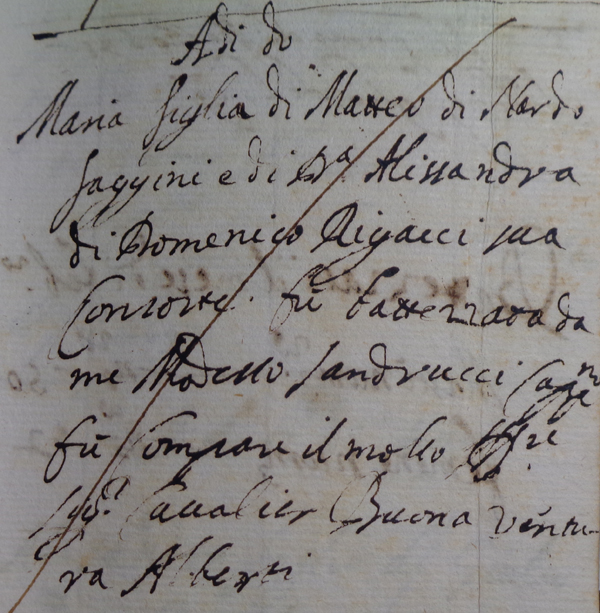 Adi do
Maria figlia di Matteo di Nardo
faggini e di D.a Alissandra
di Domenico Rigacci sua
Consorte. fù battezzata da
me Modesto Sandrucci Capp.no
fù Compare il molto
Sig.r Caualier Buona ventu-
ra Alberti